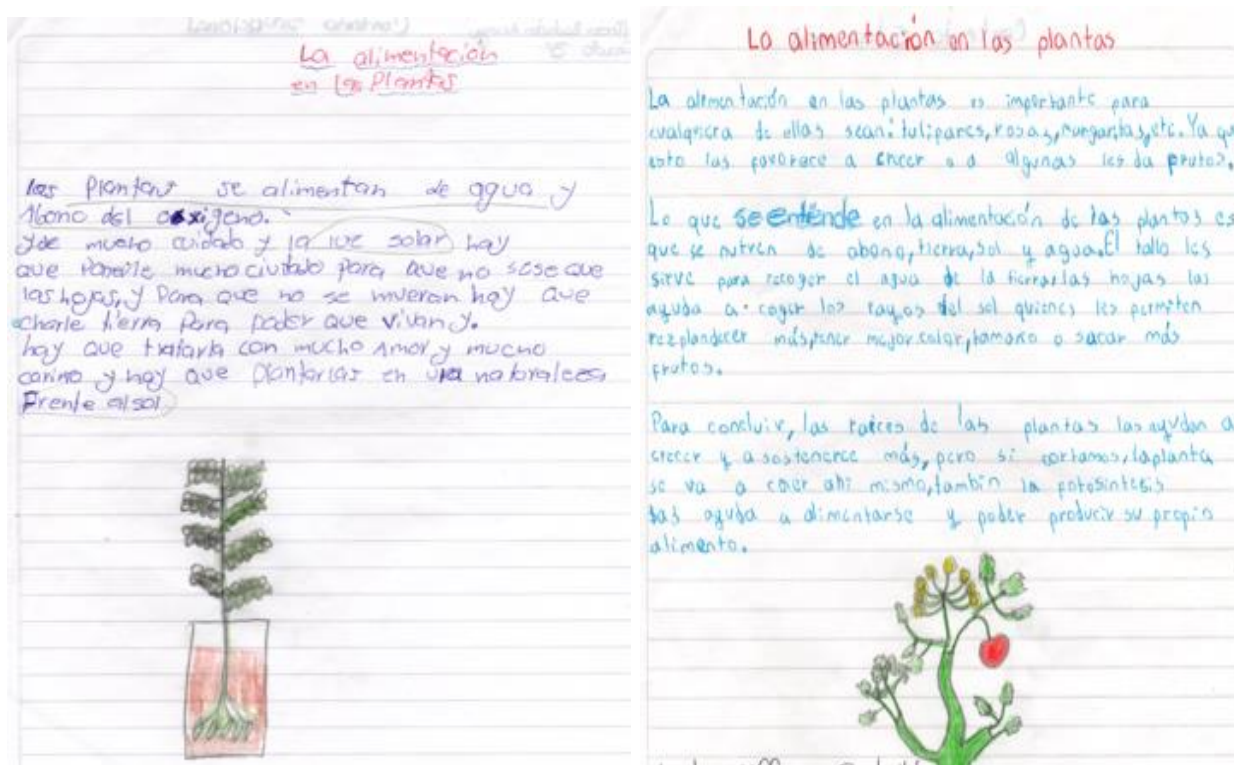 La alimentación
en Las Plantas
las Plantas se alimentan de agua y
Abono del oxigeno.
y de mucho cuidado y la luz solar hay
que ponerle mucho ciutado para que no se se que
las hojas, y Para que no se mueran hay que
echarle tierra Para poder que vivan y.
hay que tratarla con mucho Amor y mucho
carino y hay que plantarlas en una naturaleesa
Frente al sol
La alimentación en las plantas
La alimentación en las plantas es importante para
cualquiera de ellas sean: tulipanes, rosas, margaritas, etc. Ya que
esto las favorece a crecer o a algunas les da frutos.
Lo que se entiende en la alimentación de las plantas es
que se nutren de abono, tierra, sol y agua. El tallo les
sirve para recoger el agua de la tierra, las hojas las
ayuda a coger los rayos del sol quienes les permiten
rezplandecer más, tener mejor color, tamaño o sacar más
frutos.
Para concluir, las raíces de las plantas las ayudan a
crecer y a sostenerce más, pero si cortamos, la planta
se va a caer ahi mismo, tambin la fotosintesis
las ayuda a alimentarse y poder producir su propio
alimento.